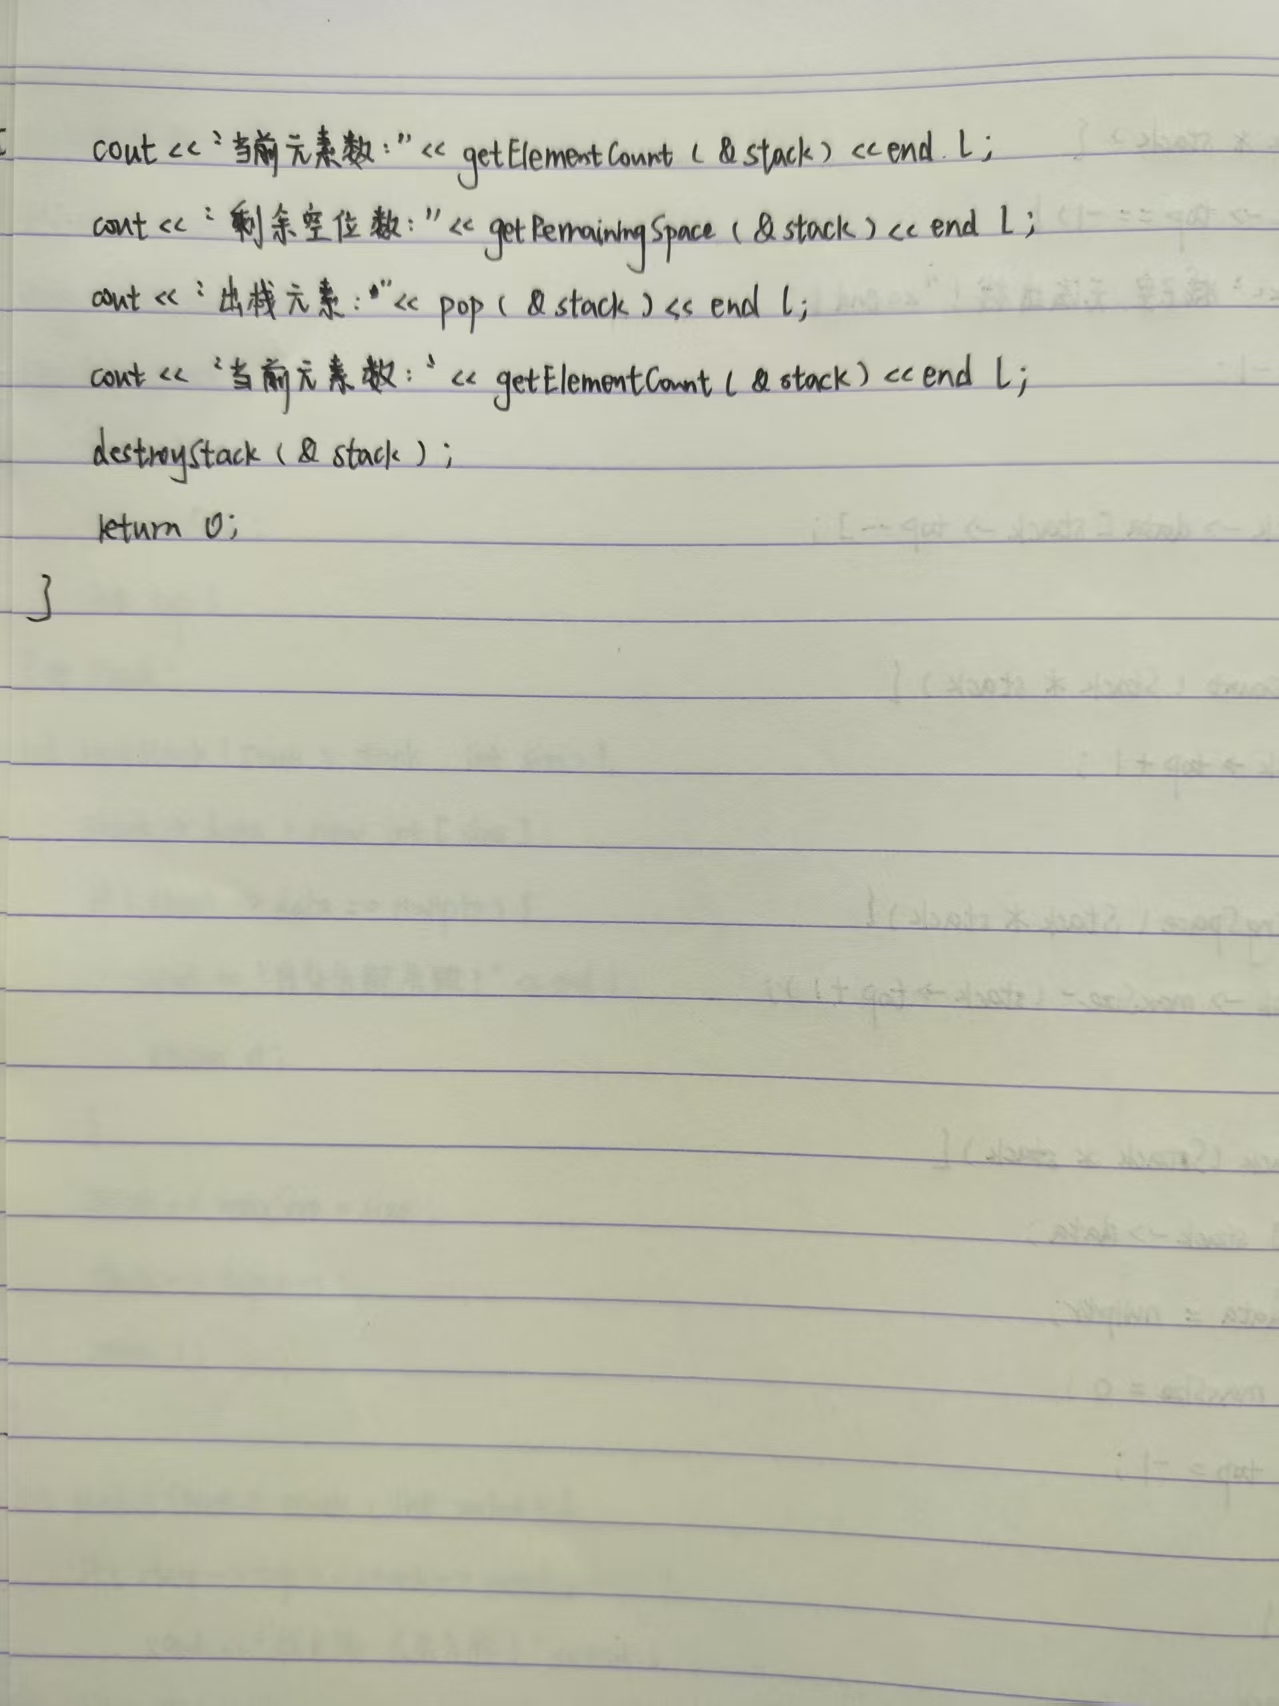 cout << "当前元素数:" << getElementCount ( & stack ) << end l ;
cout << " 剩余空位数:" << getRemainingSpace ( & stack ) << end l ;
cout << " 出栈元素:" << pop ( & stack ) << end l ;
cout << "当前元素数:" << getElementCount ( & stack ) << end l ;
destroyStack ( & stack ) ;
return 0 ;
}